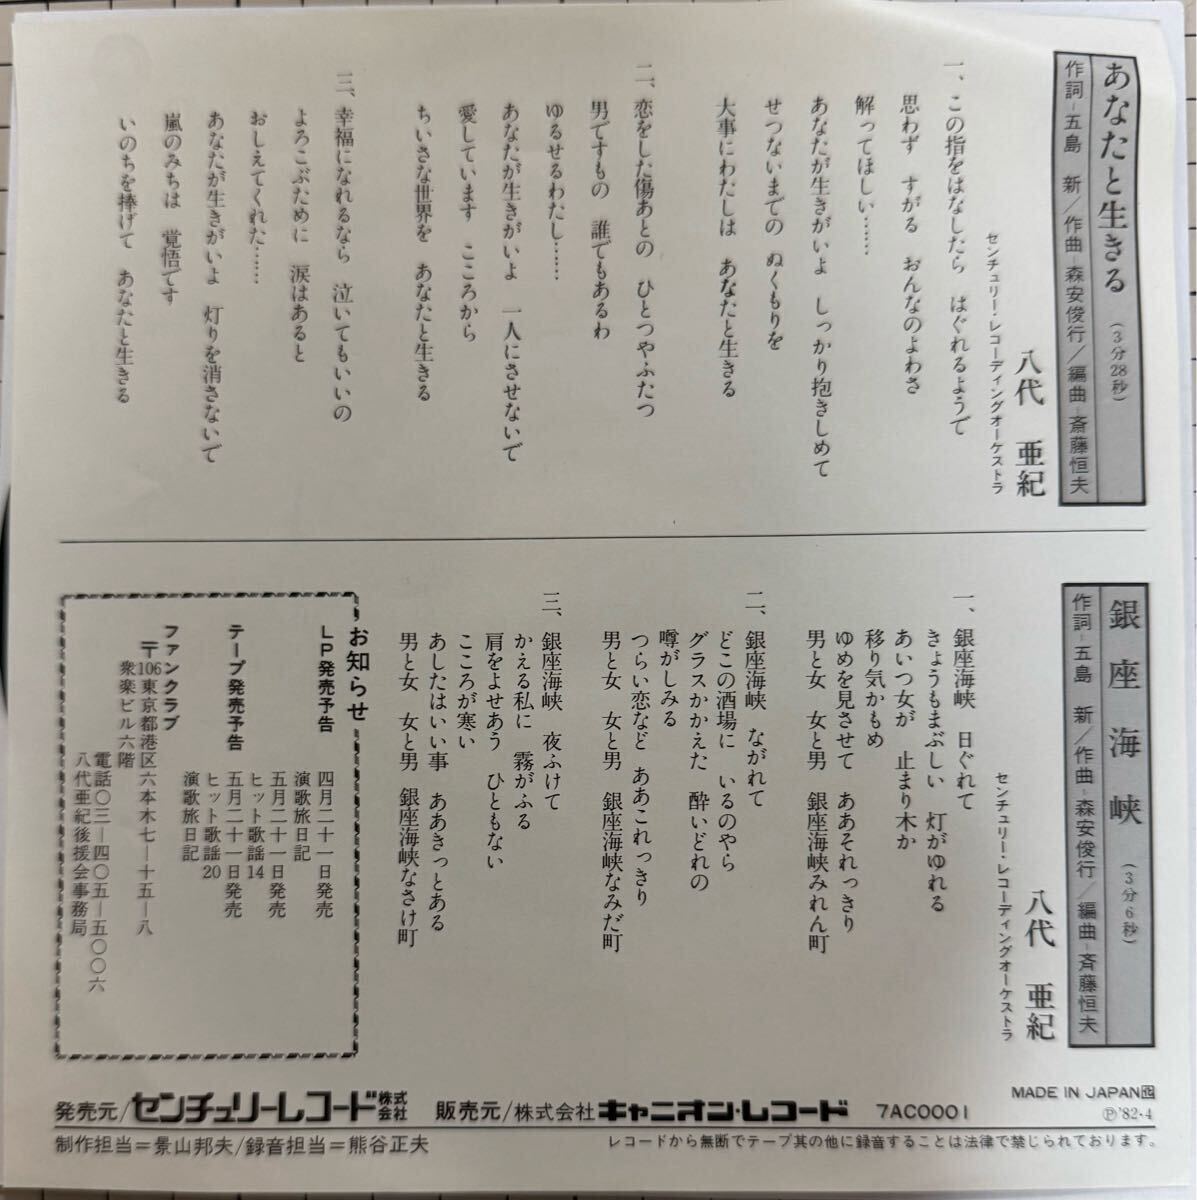 あなたと生きる （3分28秒）
作詞＝五島　新／作曲＝森安俊行／編曲＝斎藤恒夫
八代　亜紀
センチュリー・レコーディングオーケストラ
一、この指をはなしたら　はぐれるようで
思わず　すがる　おんなのよわさ
解ってほしい……
あなたが生きがいよ　しっかり抱きしめて
せつないまでの　ぬくもりを
大事にわたしは　あなたと生きる
二、恋をした傷あとの　ひとつやふたつ
男ですもの　誰でもあるわ
ゆるせるわたし……
あなたが生きがいよ　一人にさせないで
愛しています　こころから
ちいさな世界を　あなたと生きる
三、幸福になれるなら　泣いてもいいの
よろこぶために　涙はあると
おしえてくれた……
あなたが生きがいよ　灯りを消さないで
嵐のみちは　覚悟です
いのちを捧げて　あなたと生きる
銀座海峡 （3分6秒）
作詞＝五島　新／作曲＝森安俊行／編曲＝斉藤恒夫
八代　亜紀
センチュリー・レコーディングオーケストラ
一、銀座海峡　日ぐれて
きょうもまぶしい　灯がゆれる
あいつ女が　止まり木か
移り気かもめ
ゆめを見させて　ああそれっきり
男と女　女と男　銀座海峡みれん町
二、銀座海峡　ながれて
どこの酒場に　いるのやら
グラスかかえた　酔いどれの
噂がしみる
つらい恋など　ああこれっきり
男と女　女と男　銀座海峡なみだ町
三、銀座海峡　夜ふけて
かえる私に　霧がふる
肩をよせあう　ひともない
こころが寒い
あしたはいい事　ああきっとある
男と女　女と男　銀座海峡なさけ町
お知らせ
ＬＰ発売予告
四月二十一日発売
演歌旅日記
五月二十一日発売
ヒット歌謡14
テープ発売予告
五月二十一日発売
ヒット歌謡20
演歌旅日記
ファンクラブ
〒106東京都港区六本木七―十五―八
衆楽ビル六階
電話〇三―四〇五―五〇〇六
八代亜紀後援会事務局
MADE IN JAPAN
発売元/センチュリーレコード株式会社　販売元/株式会社キャニオン・レコード　7AC0001　Ⓟ'82・4
制作担当＝景山邦夫/録音担当＝熊谷正夫　レコードから無断でテープ其の他に録音することは法律で禁じられております。